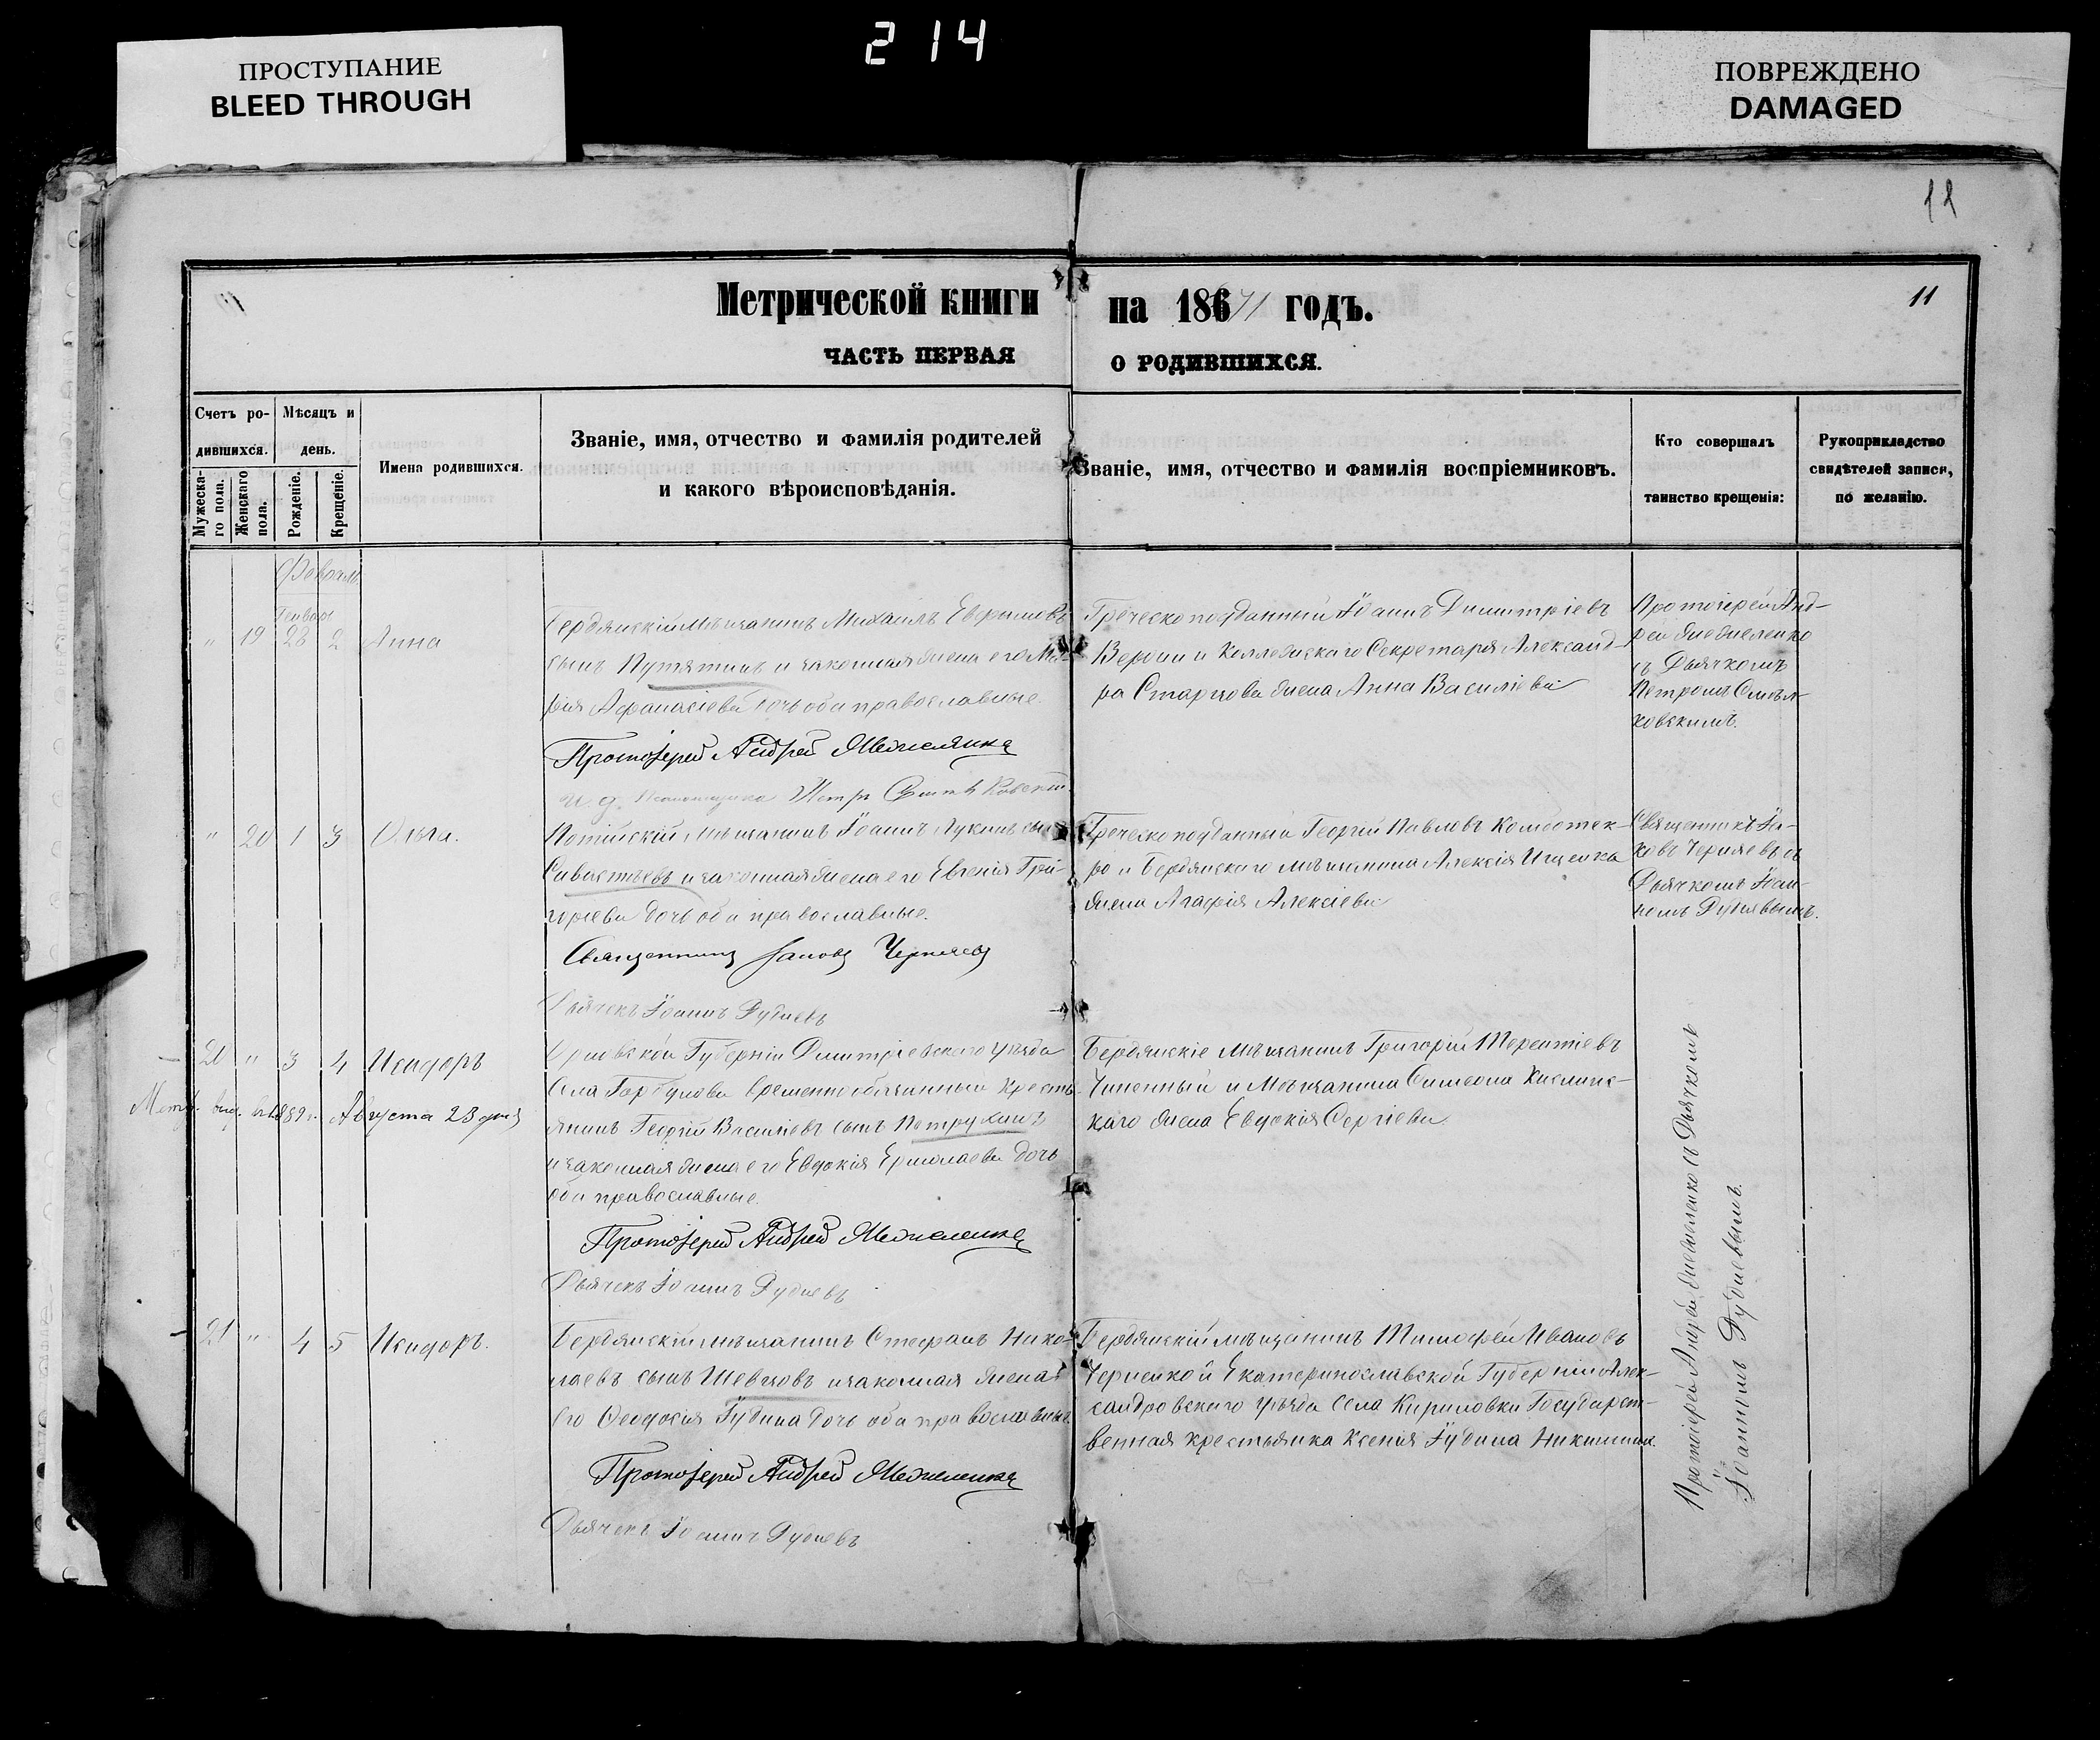 ПРОСТУПАНИЕ
BLEED THROUGH
214
ПОВРЕЖДЕНО
DAMAGED
11
Метрической книги на 1871 годъ.
11
ЧАСТЬ ПЕРВАЯ О РОДИВШИХСЯ.
Счетъ ро-
дившихся.
Мѣсяцъ и
день.
Мужеска-
го пола.
Женскаго
пола.
Рожденіе.
Крещеніе.
Имена родившихся.
Званіе, имя, отчество и фамилія родителей
и какого вѣроисповѣданія.
Званіе, имя, отчество и фамилія воспріемниковъ.
Кто совершалъ
таинство крещенія:
Рукоприкладство
свидѣтелей записи,
по желанію.
Февраль
Генваря
" 19 28 2 Анна
Бердянскій мѣщанинъ Михаилъ Ефримовъ
сынъ Путятинъ и законная жена его Ма-
рія Афанасіева дочь оба православные.
Протоіерей Андрей Межеленко
И. д. Петръ
Греческоподданный Іоаннъ Димитріевъ
Вероии и Коллежскаго Секретаря Александ-
ра Старцова жена Анна Василіева
Протоіерей Анд-
рей Межеленко
съ Дьячкомъ
Петромъ
" 20 1 3 Ольга.
Потійскій мѣщанинъ Іоаннъ Лукинъ сынъ
Савастьевъ и законная жена его Евгенія Гри-
горіева дочь оба православные.
Священникъ Іаковъ Черняевъ
Дьячекъ Іоаннъ Рудневъ
Греческоподданный Георгій Павловъ
и Бердянскаго мѣщанина Алексія Ищенка
жена Агафія Алексіева
Священникъ Іа-
ковъ Черняевъ съ
Дьячкомъ Іоан-
номъ Рудневымъ.
20 " 3 4 Исидоръ
Метр. выд. въ 1889 г. Августа 23 дня
Орловской Губерніи Димитріевскаго уѣзда
Села Горбунова временнообязанный кресть-
янинъ Георгій Василіевъ сынъ Петрухинъ
и законная жена его Евдокія Ермолаева дочь
оба православные.
Протоіерей Андрей Межеленко
Дьячекъ Іоаннъ Рудневъ
Бердянскіе мѣщанинъ Григорій Терентіевъ
Чиненный и мѣщанина Симеона Кислинс-
каго жена Евдокія Сергіева
Протоіерей Андрей Межеленко съ Дьячкомъ
Іоанномъ Рудневымъ.
21 " 4 5 Исидоръ.
Бердянскій мѣщанинъ Стефанъ Нико-
лаевъ сынъ Шевцовъ и законная жена
его Феодосія Іудина дочь оба православные
Протоіерей Андрей Межеленко
Дьячекъ Іоаннъ Рудневъ
Бердянскій мѣщанинъ Тимофей Ивановъ
Черненкой Екатеринославской Губерніи Алек-
сандровскаго уѣзда села Кириловки Государст-
венная крестьянка Ксенія Іудина